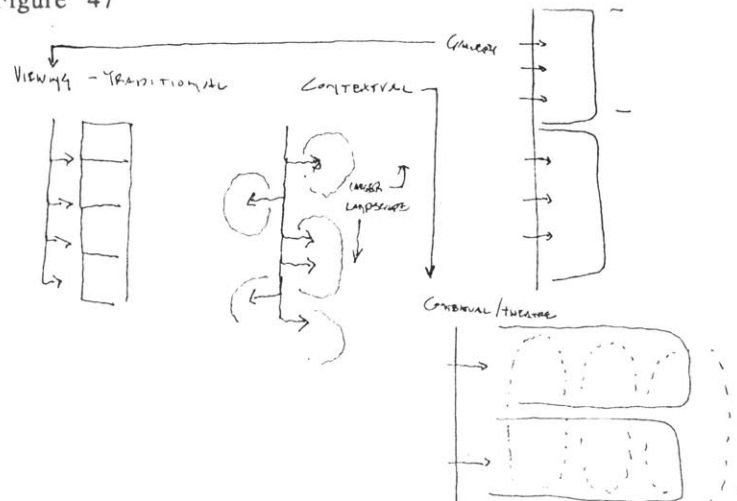 Figure 47
GALLERY
VIEWING - TRADITIONAL
CONTEXTUAL
LARGER
LANDSCAPE
CONTEXTUAL/THEATRE